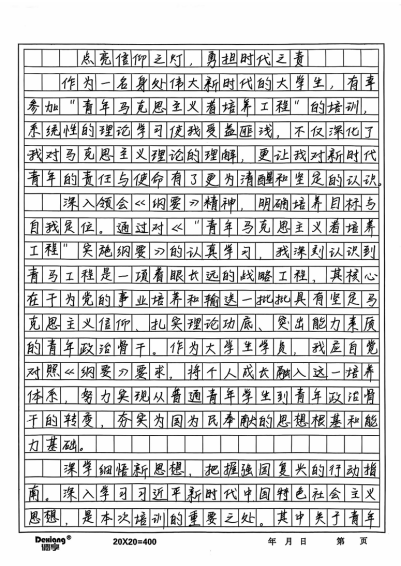 点亮信仰之灯，勇担时代之责
作为一名身处伟大新时代的大学生，有幸
参加"青年马克思主义者培养工程"的培训，
系统性的理论学习使我受益匪浅，不仅深化了
我对马克思主义理论的理解，更让我对新时代
青年的责任与使命有了更为清醒和坚定的认识。
深入领会《纲要》精神，明确培养目标与
自我定位。通过对《"青年马克思主义者培养
工程"实施纲要》的认真学习，我深刻认识到
青马工程是一项着眼长远的战略工程，其核心
在于为党的事业培养和输送一批批具有坚定马
克思主义信仰、扎实理论功底、突出能力素质
的青年政治骨干。作为大学生学员，我应自觉
对照《纲要》要求，将个人成长融入这一培养
体系，努力实现从普通青年学生到青年政治骨
干的转变，夯实为国为民奉献的思想根基和能
力基础。
深学细悟新思想，把握强国复兴的行动指
南。深入学习习近平新时代中国特色社会主义
思想，是本次培训的重要之处。其中关于青年
Dexiang® 得享 20X20=400 年 月 日 第 页